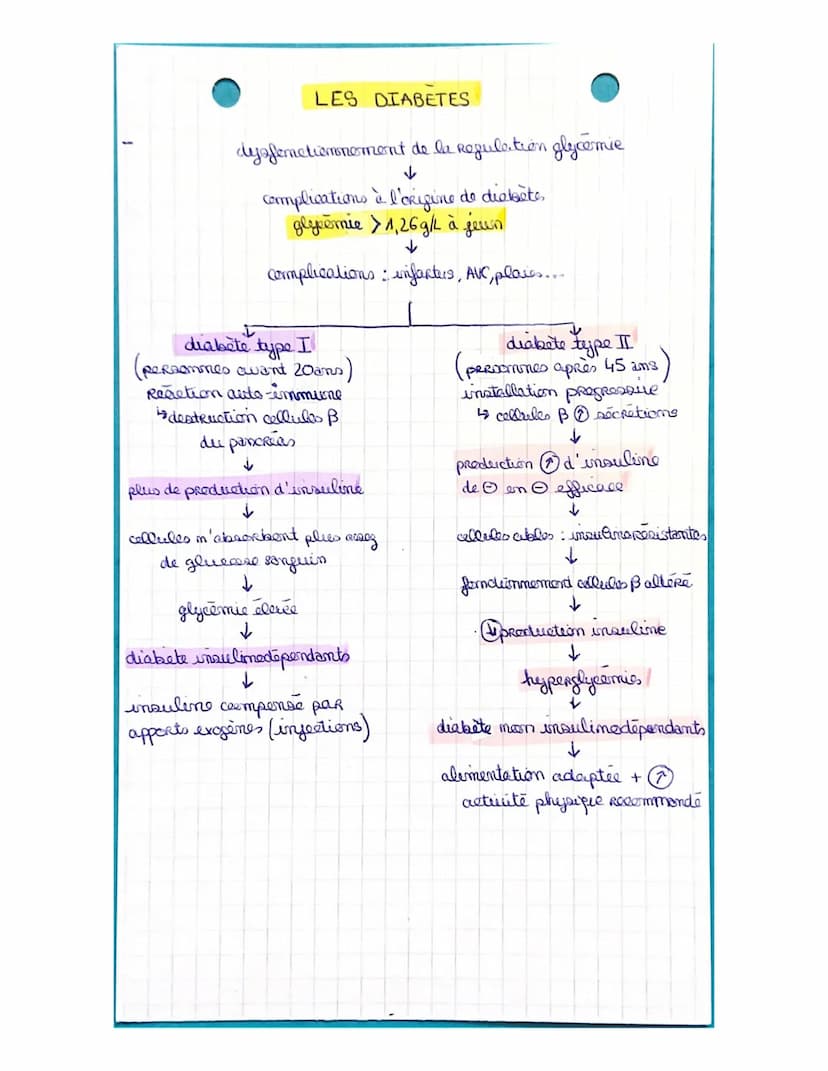 LES DIABÈTES
dysfonctionnement de la régulation glycémie
↓
complications à l'origine de diabète
glycémie > 1,26g/L à jeun
↓
complications : infarctus, AVC, plaies...
diabète type I
(personnes avant 20ans)
Réaction auto-immune
↳ destruction cellules β
du pancréas
↓
plus de production d'insuline
↓
cellules n'absorbent plus assez
de glucose sanguin
↓
glycémie élevée
↓
diabète insulinodépendants
↓
insuline compensé par
apports exogènes (injections)
diabète type II
(personnes après 45 ans)
installation progressive
↳ cellules β ↑ sécrétions
↓
production ↑ d'insuline
de ⊖ en ⊖ efficace
↓
cellules cibles : insulinorésistantes
↓
fonctionnement cellules β altéré
↓
↓ production insuline
↓
hyperglycémies
↓
diabète non insulinodépendants
↓
alimentation adaptée + ↑
activité physique recommandé